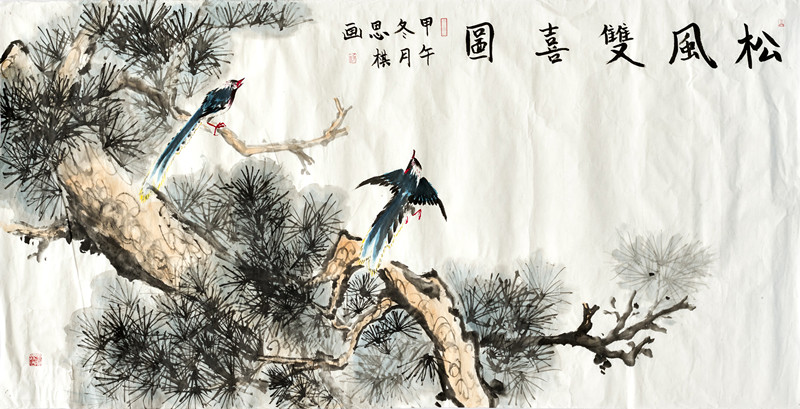 松風雙喜圖
甲午
冬月
思棋
画